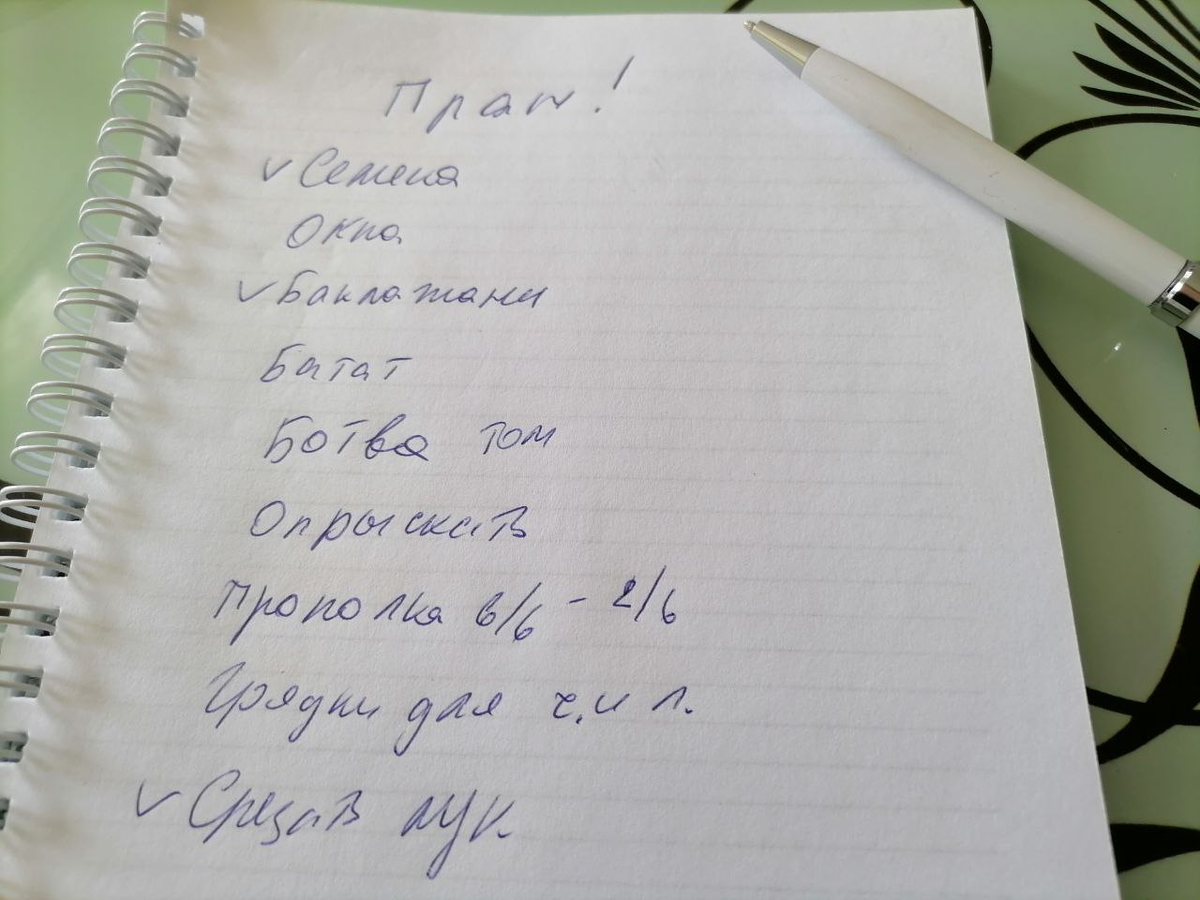 План!
✓ Семена
Окна
✓ Баклажани
Батат
Ботва том
Опрыскать
Прополка в/б - 2/б
Грядки для ч. и л.
✓ Срезать лук.